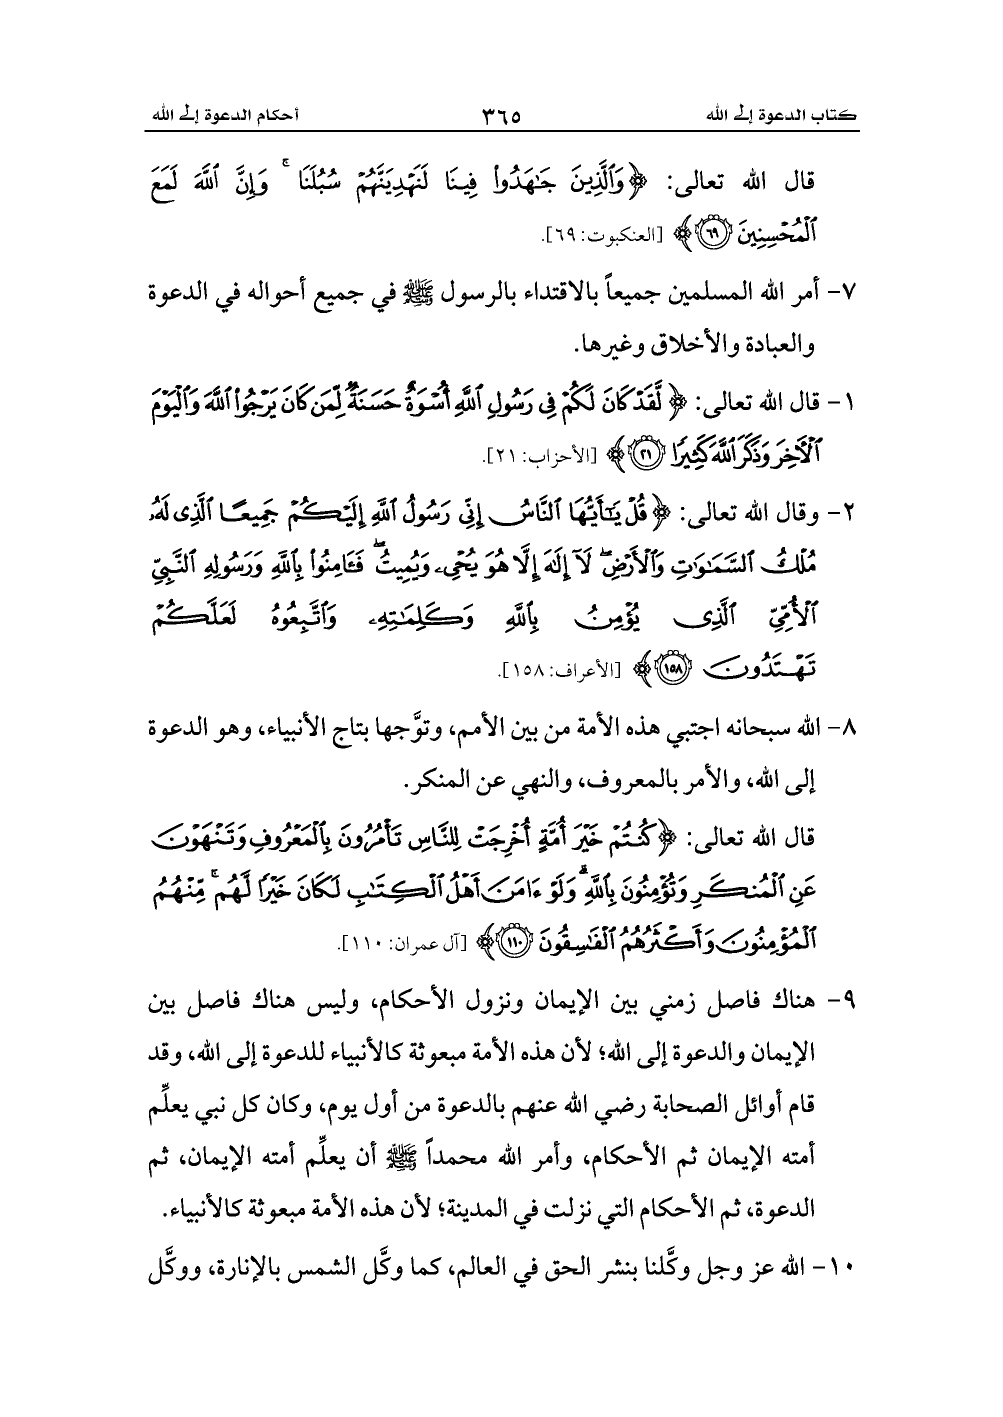 كتاب الدعوة إلى الله ٣٦٥ أحكام الدعوة إلى الله
قال الله تعالى: ﴿وَٱلَّذِينَ جَٰهَدُوا۟ فِينَا لَنَهْدِيَنَّهُمْ سُبُلَنَا ۚ وَإِنَّ ٱللَّهَ لَمَعَ
ٱلْمُحْسِنِينَ ٦٩﴾ [العنكبوت: ٦٩].
٧- أمر الله المسلمين جميعاً بالاقتداء بالرسول ﷺ في جميع أحواله في الدعوة
والعبادة والأخلاق وغيرها.
١- قال الله تعالى: ﴿لَّقَدْ كَانَ لَكُمْ فِى رَسُولِ ٱللَّهِ أُسْوَةٌ حَسَنَةٌ لِّمَن كَانَ يَرْجُوا۟ ٱللَّهَ وَٱلْيَوْمَ
ٱلْـَٔاخِرَ وَذَكَرَ ٱللَّهَ كَثِيرًا ٢١﴾ [الأحزاب: ٢١].
٢- وقال الله تعالى: ﴿قُلْ يَٰٓأَيُّهَا ٱلنَّاسُ إِنِّى رَسُولُ ٱللَّهِ إِلَيْكُمْ جَمِيعًا ٱلَّذِى لَهُۥ
مُلْكُ ٱلسَّمَٰوَٰتِ وَٱلْأَرْضِ ۖ لَآ إِلَٰهَ إِلَّا هُوَ يُحْىِۦ وَيُمِيتُ ۖ فَـَٔامِنُوا۟ بِٱللَّهِ وَرَسُولِهِ ٱلنَّبِىِّ
ٱلْأُمِّىِّ ٱلَّذِى يُؤْمِنُ بِٱللَّهِ وَكَلِمَٰتِهِۦ وَٱتَّبِعُوهُ لَعَلَّكُمْ
تَهْتَدُونَ ١٥٨﴾ [الأعراف: ١٥٨].
٨- الله سبحانه اجتبي هذه الأمة من بين الأمم، وتوَّجها بتاج الأنبياء، وهو الدعوة
إلى الله، والأمر بالمعروف، والنهي عن المنكر.
قال الله تعالى: ﴿كُنتُمْ خَيْرَ أُمَّةٍ أُخْرِجَتْ لِلنَّاسِ تَأْمُرُونَ بِٱلْمَعْرُوفِ وَتَنْهَوْنَ
عَنِ ٱلْمُنكَرِ وَتُؤْمِنُونَ بِٱللَّهِ ۗ وَلَوْ ءَامَنَ أَهْلُ ٱلْكِتَٰبِ لَكَانَ خَيْرًا لَّهُم ۚ مِّنْهُمُ
ٱلْمُؤْمِنُونَ وَأَكْثَرُهُمُ ٱلْفَٰسِقُونَ ١١٠﴾ [آل عمران: ١١٠].
٩- هناك فاصل زمني بين الإيمان ونزول الأحكام، وليس هناك فاصل بين
الإيمان والدعوة إلى الله؛ لأن هذه الأمة مبعوثة كالأنبياء للدعوة إلى الله، وقد
قام أوائل الصحابة رضي الله عنهم بالدعوة من أول يوم، وكان كل نبي يعلِّم
أمته الإيمان ثم الأحكام، وأمر الله محمداً ﷺ أن يعلِّم أمته الإيمان، ثم
الدعوة، ثم الأحكام التي نزلت في المدينة؛ لأن هذه الأمة مبعوثة كالأنبياء.
١٠- الله عز وجل وكَّلنا بنشر الحق في العالم، كما وكَّل الشمس بالإنارة، ووكَّل